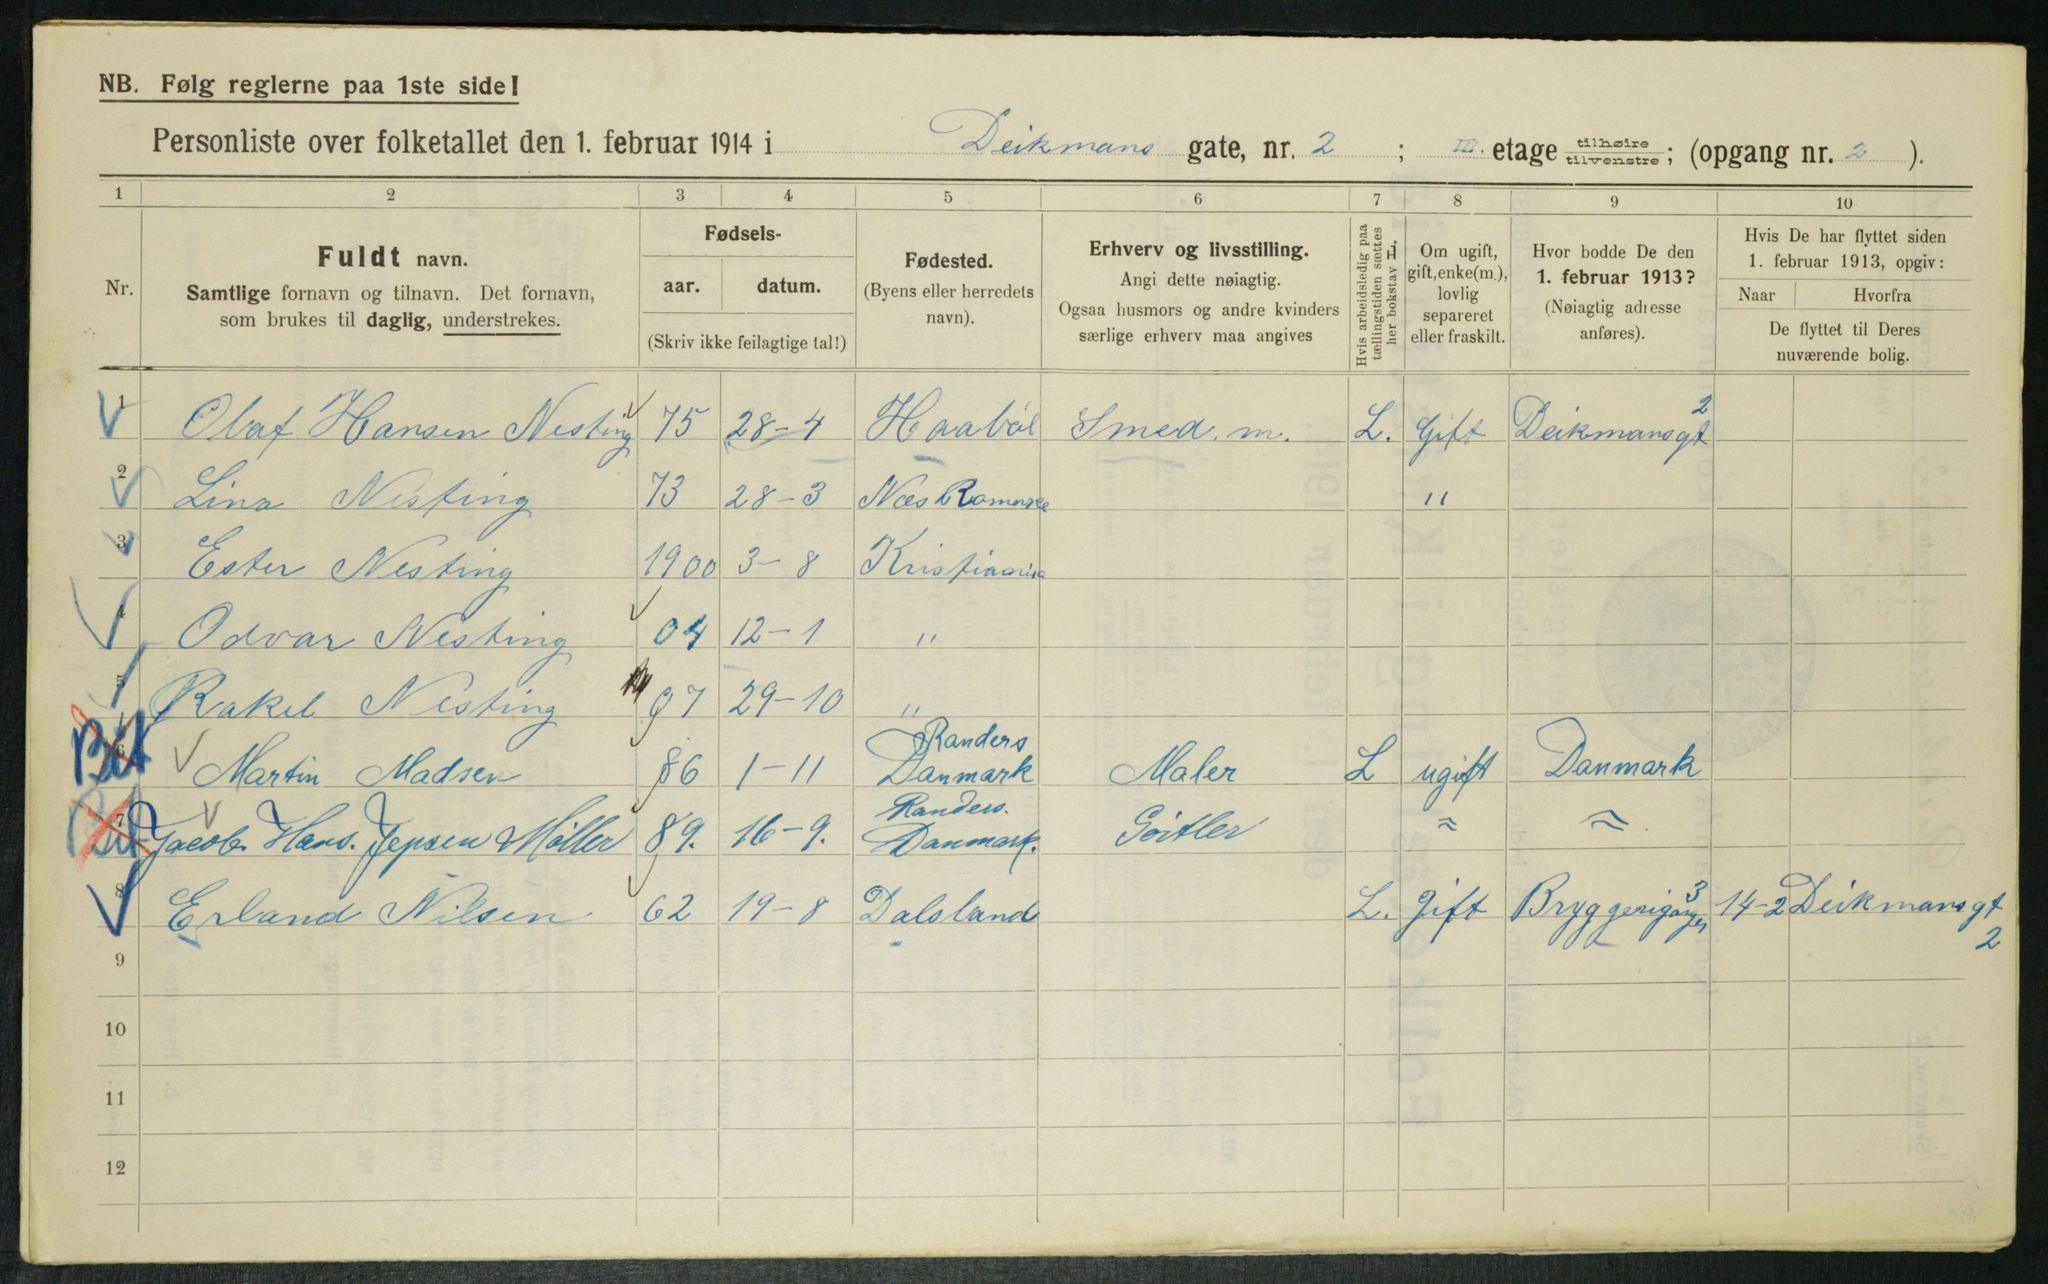 NB. Følg reglerne paa 1ste side!
Personliste over folketallet den 1. februar 1914 i Deikmans gate, nr. 2 ; III. etage tilhøire tilvenstre; (opgang nr. 2 ).
1 2 3 4 5 6 7 8 9 10
Nr.
Fuldt navn.
Samtlige fornavn og tilnavn. Det fornavn,
som brukes til daglig, understrekes.
Fødsels-
aar. datum.
(Skriv ikke feilagtige tal!)
Fødested.
(Byens eller herredets
navn).
Erhverv og livsstilling.
Angi dette nøiagtig.
Ogsaa husmors og andre kvinders
særlige erhverv maa angives
Hvis arbeidsledig paa
tællingstiden sættes
her bokstav L.
Om ugift,
gift, enke(m.),
lovlig
separeret
eller fraskilt.
Hvor bodde De den
1. februar 1913?
(Nøiagtig adresse
anføres).
Hvis De har flyttet siden
1. februar 1913, opgiv:
Naar Hvorfra
De flyttet til Deres
nuværende bolig.
1 Olaf Hansen Nesting 75 28-4 Haabøl Smed. m. L. Gift Deikmansgt 2
2 Lina Nesting 73 28-3 Næs Romerike "
3 Ester Nesting 1900 3-8 Kristiania
4 Odvar Nesting 04 12-1 "
5 Rakel Nesting 07 29-10 "
Bit 6 Martin Madsen 86 1-11 Randers Danmark Maler L ugift Danmark
Bit 7 Jacob. Hans. Jepsen Møller 89. 16-9. Randers. Danmark. Gørtler " "
8 Erland Nilsen 62 19-8 Dalsland L. Gift 3 14-2 Deikmansgt 2
9
10
11
12